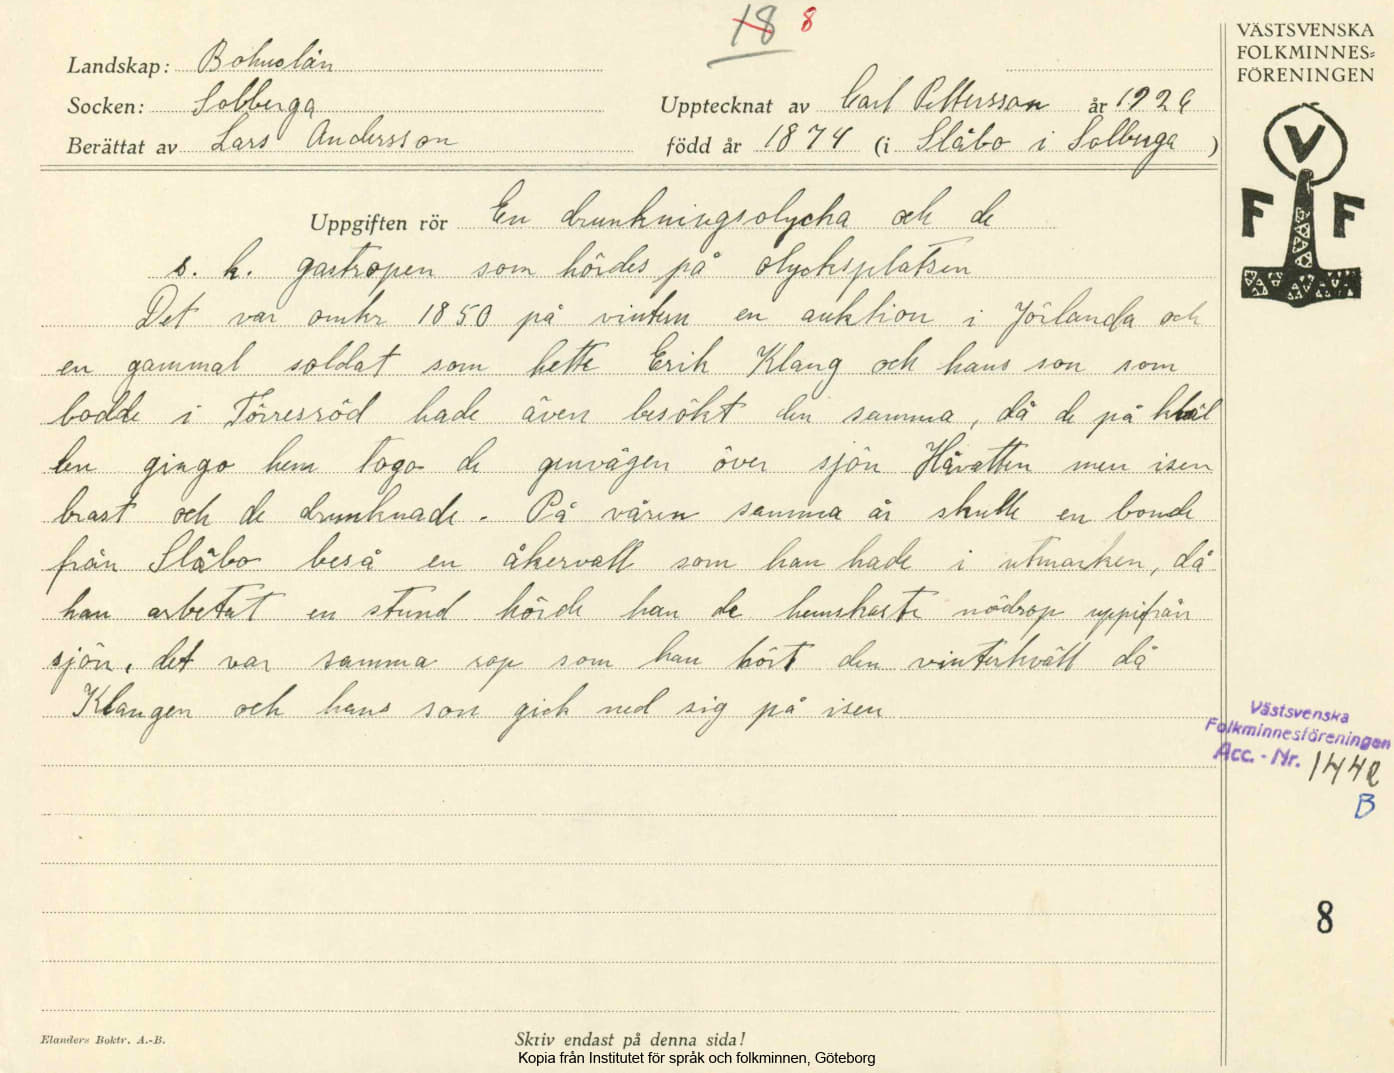 18 8
VÄSTSVENSKA
FOLKMINNES=
FÖRENINGEN
Landskap: Bohuslän
Socken: Solberga
Upptecknat av Carl Pettersson år 1926
Berättat av Lars Andersson
född år 1874 (i Slåbo i Solberga )
V
F F
Uppgiften rör En drunkningsolycka och de
s. k. gastropen som hördes på olycksplatsen
Det var omkr 1850 på vintern en auktion i Jörlanda och
en gammal soldat som hette Erik Klang och hans son som
bodde i Törresröd hade även besökt den samma, då de på kväl
len gingo hem togo de genvägen över sjön Håvatten men isen
brast och de drunknade. På våren samma år skulle en bonde
från Slåbo beså en åkervall som han hade i utmarken, då
han arbetat en stund hörde han de hemskaste nödrop uppifrån
sjön, det var samma rop som han hört den vinterkväll då
Klangen och hans son gick ned sig på isen
Västsvenska
Folkminnesföreningen
Acc. - Nr. 1442
B
8
Elanders Boktr. A.-B.
Skriv endast på denna sida!
Kopia från Institutet för språk och folkminnen, Göteborg